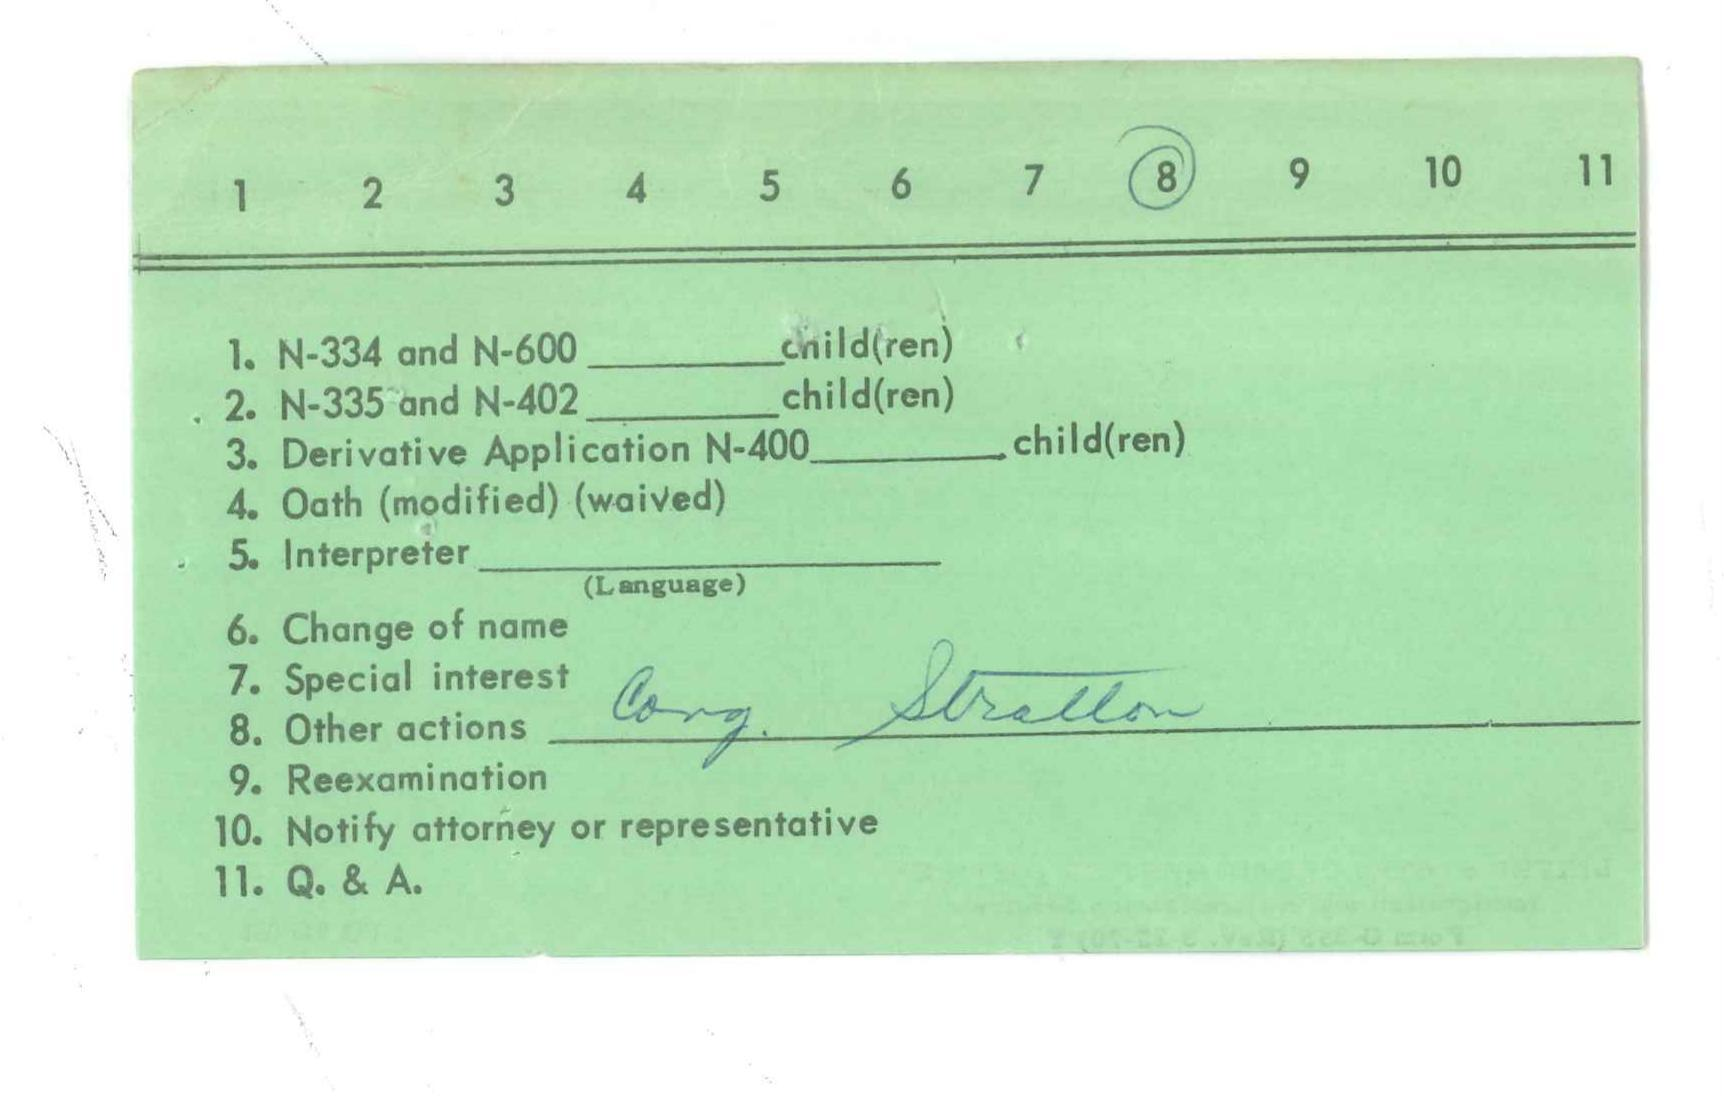 1 2 3 4 5 6 7 8 9 10 11
1. N-334 and N-600 ________ child(ren)
2. N-335 and N-402 ________ child(ren)
3. Derivative Application N-400 ________ child(ren)
4. Oath (modified) (waived)
5. Interpreter ________
(Language)
6. Change of name
7. Special interest
8. Other actions Cong. Stratton
9. Reexamination
10. Notify attorney or representative
11. Q. & A.